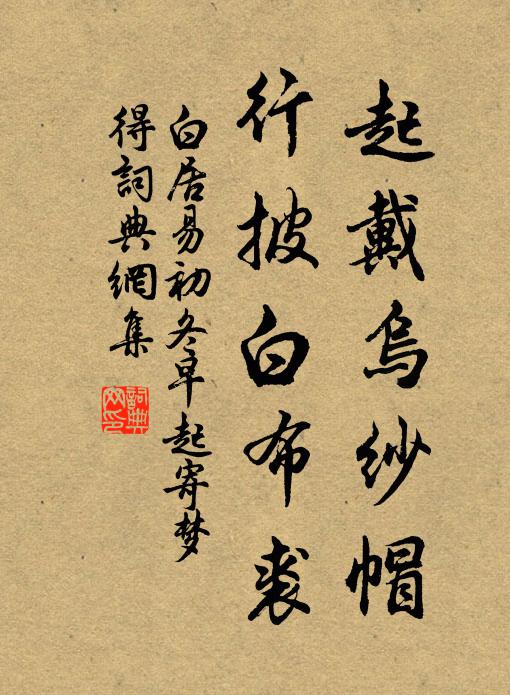 起戴烏紗帽
行披白布裘
白居易初冬早起寄梦
得詞典網集
詞典
网印